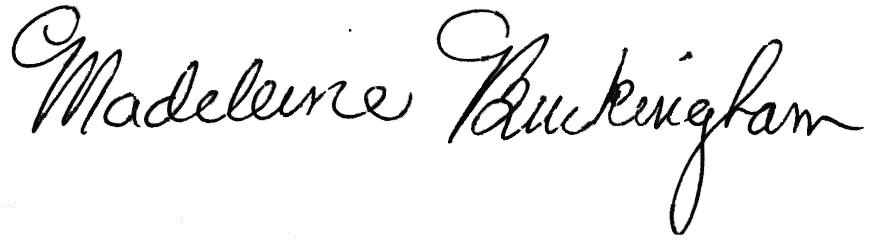 Madeleine Buckingham